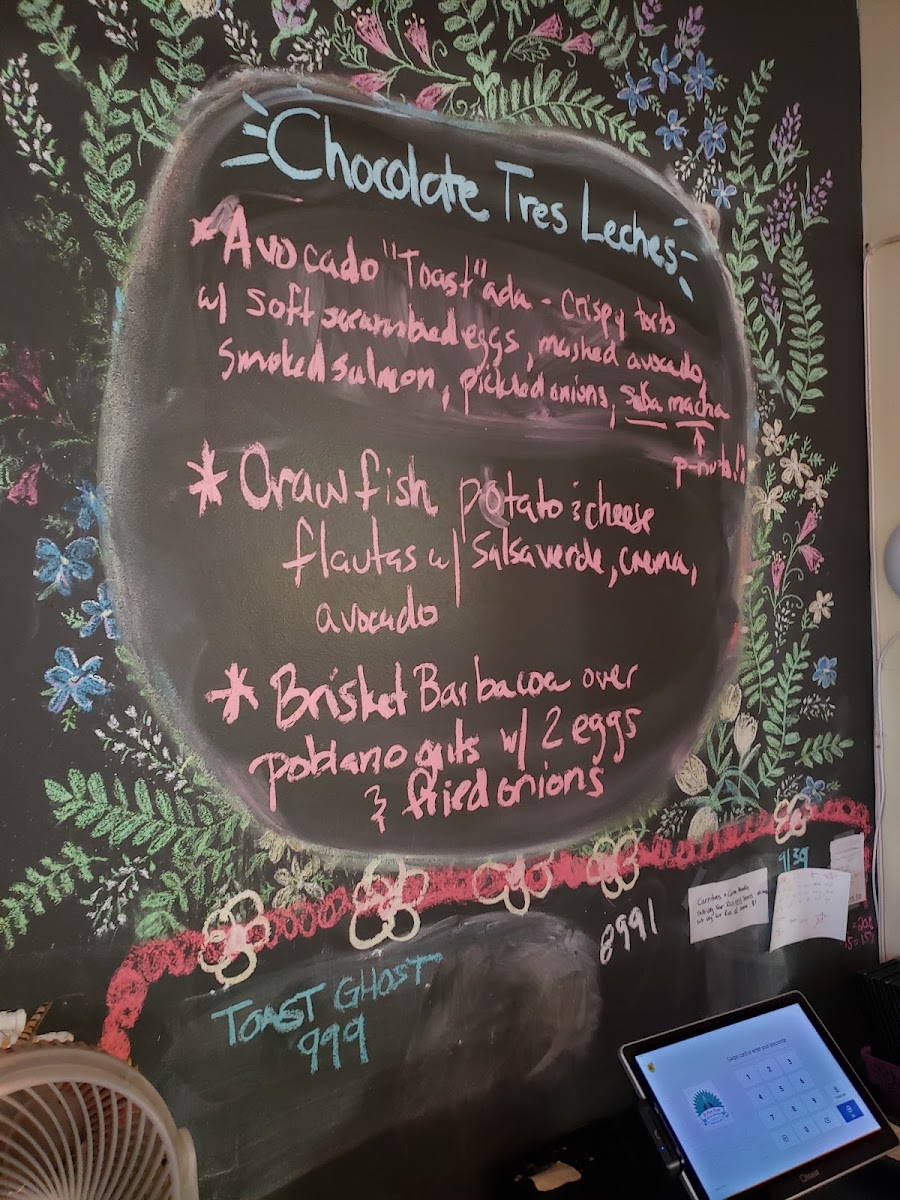 Chocolate Tres Leches
* Avocado "Toast" ada - Crispy torts
w/ soft scrambled eggs, mashed avocado,
smoked salmon, pickled onions, salsa macha
p-nuts!!
* Crawfish potato & cheese
flautas w/ Salsa verde, crema,
avocado
* Brisket Barbacoa over
poblano grits w/ 2 eggs
& fried onions
9139
8991
TOAST GHOST
999
Swipe card or enter your passcode
1 2 3
4 5 6
7 8 9
0